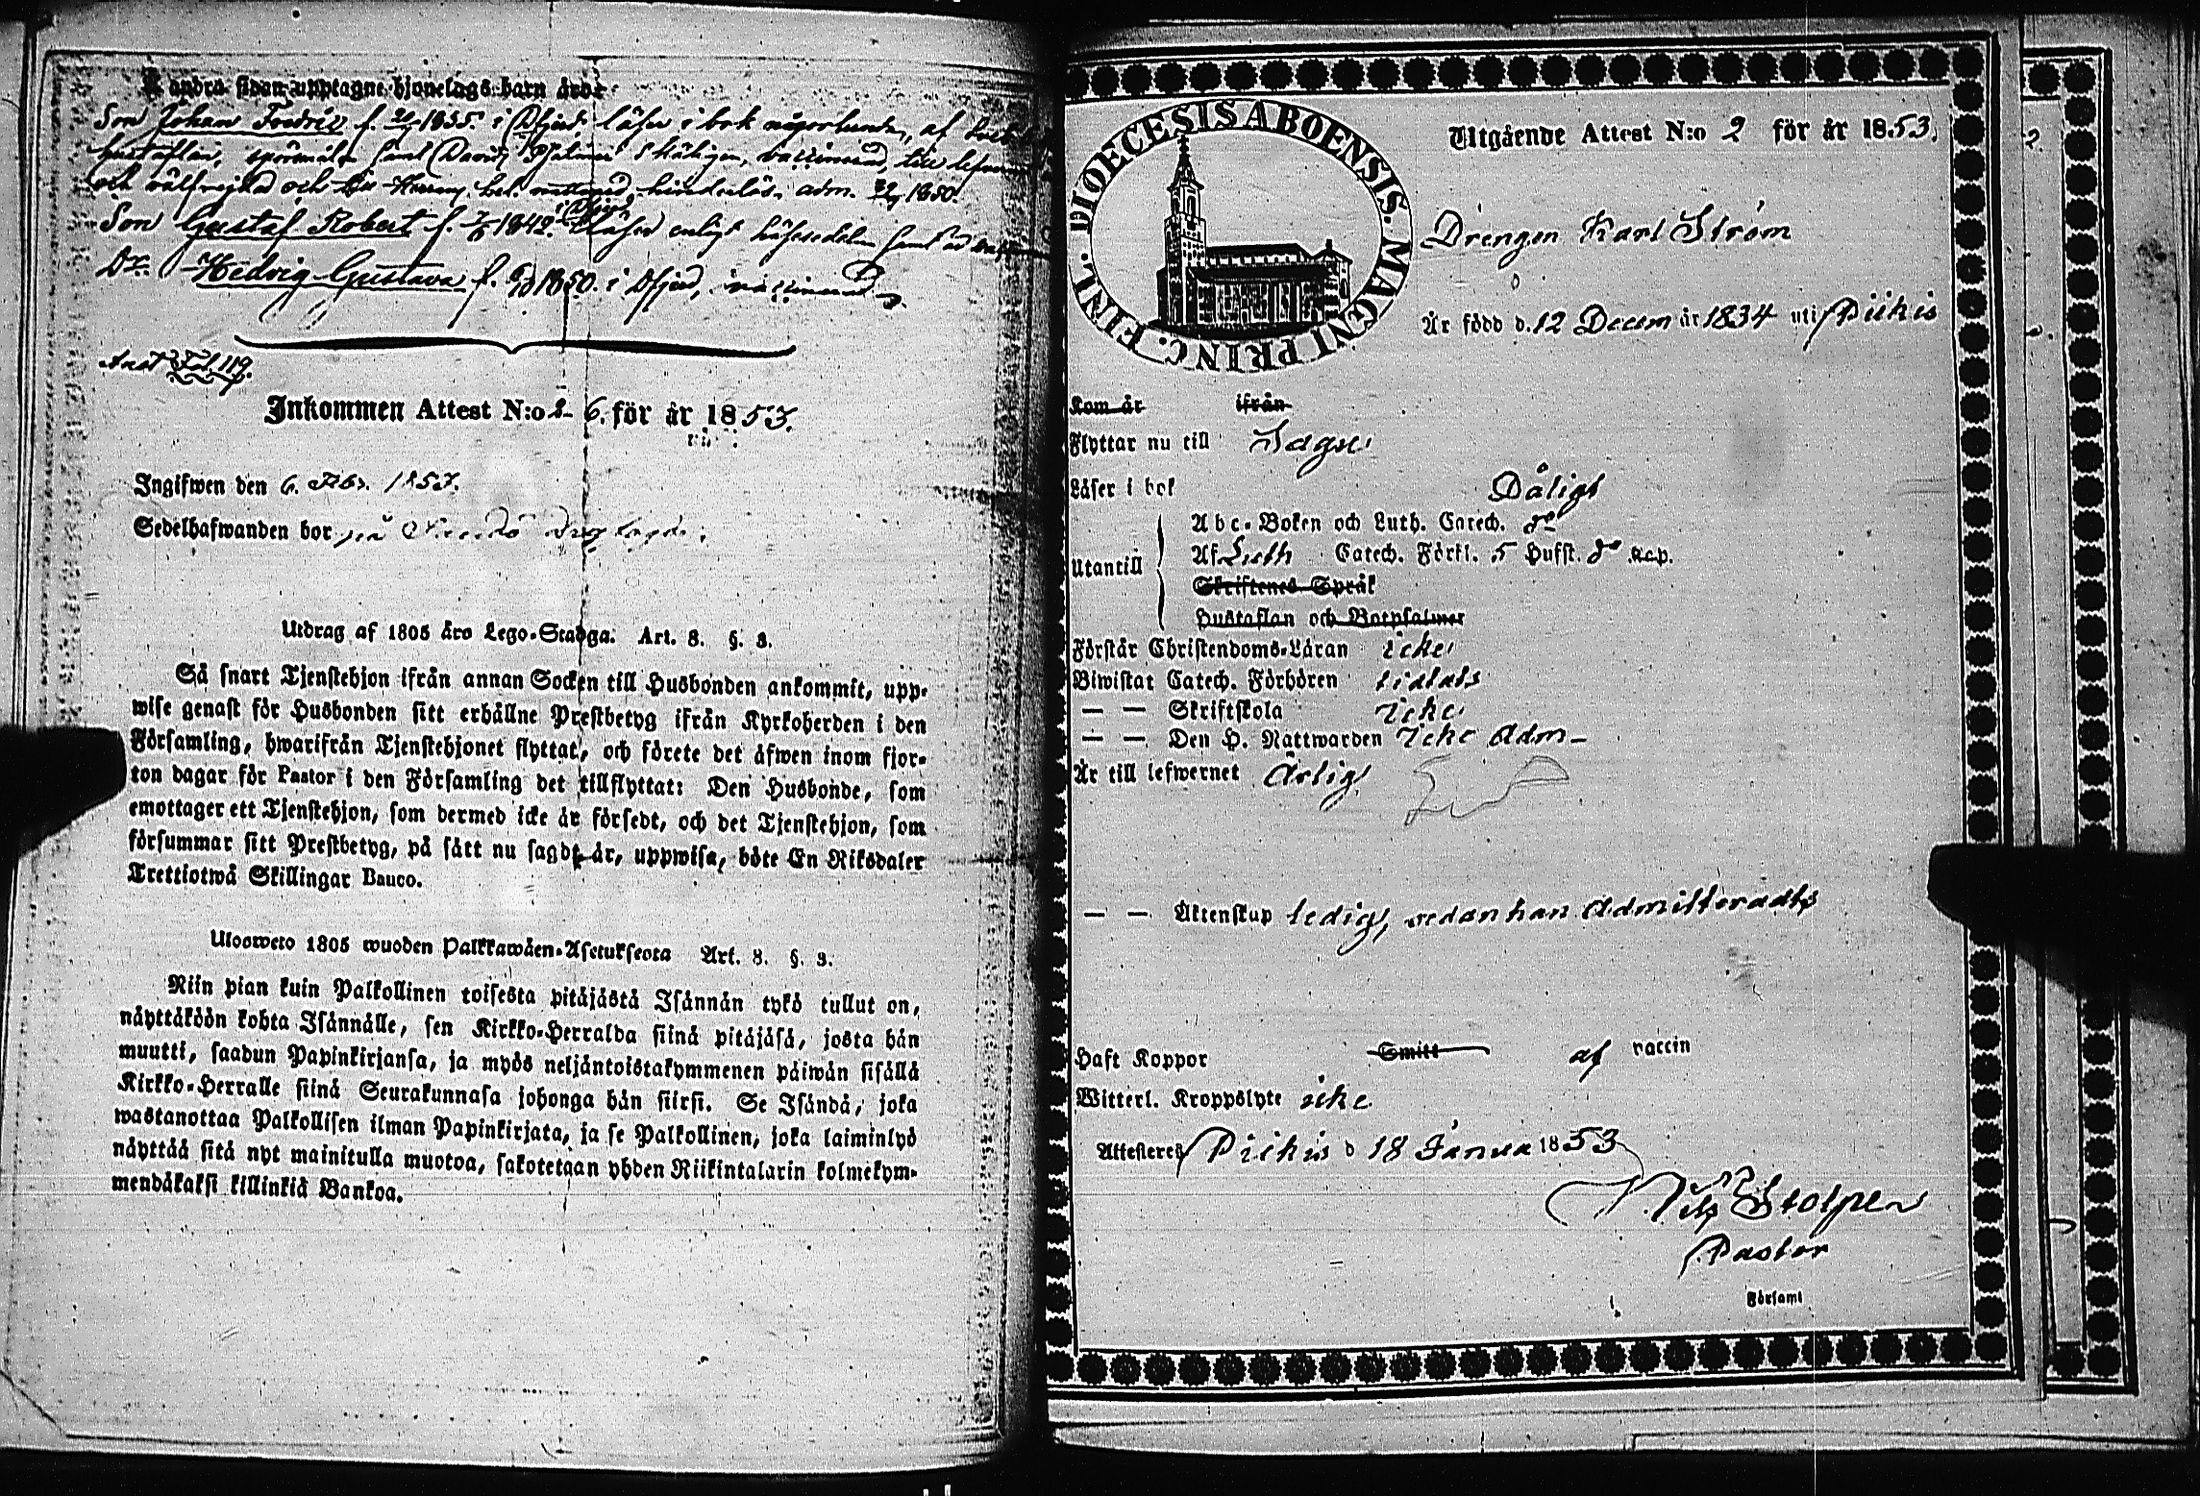 å andra sidan upptagne hjonelags barn äro:
Son Johan Fredric f. 20/9 1835. i läser i bok någorlunda, af
hustaflan, spörsmåln samt Davids Psalmer skäligen, vaccinerad, till
och välfrejdad och nattvard, hinderlös, adm. 1850.
Son Gustaf Robert f. 1842. läser enligt
Dr. Hedvig Gustava f. 1850. i vaccinerad
Fol. 119.
Inkommen Attest N:o 6. för år 1853.
Ingifwen den 6. Febr. 1853.
Sedelhafwanden bor på
Utdrag af 1805 års Lego-Stadga. Art. 8. §. 3.
Så snart Tjenstehjon ifrån annan Socken till Husbonden ankommit, upp-
wise genast för Husbonden sitt erhållne Prestbetyg ifrån Kyrkoherden i den
Församling, hwarifrån Tjenstehjonet flyttat, och förete det äfwen inom fjor-
ton dagar för Pastor i den Församling det tillflyttat: Den Husbonde, som
emottager ett Tjenstehjon, som dermed icke är försedt, och det Tjenstehjon, som
försummar sitt Prestbetyg, på sätt nu sagdt är, uppwisa, böte En Riksdaler
Trettiotwå Skillingar Banco.
Ulosweto 1805 wuoden Palkkawäen-Asetuksesta Art. 8. §. 3.
Niin pian kuin Palkollinen toisesta pitäjästä Isännän tykö tullut on,
näyttäköön kohta Isännälle, sen Kirkko-Herralda siinä pitäjäsä, josta hän
muutti, saadun Papinkirjansa, ja myös neljäntoistakymmenen päiwän sisällä
Kirkko-Herralle siinä Seurakunnasa johonga hän siirsi. Se Isändä, joka
wastanottaa Palkollisen ilman Papinkirjata, ja se Palkollinen, joka laiminlyö
näyttää sitä nyt mainitulla muotoa, sakotetaan yhden Riikintalarin kolmekym-
mendäkaksi killinkiä Bankoa.
DIOECESIS ABOENSIS. MAGNI PRINC. FINL.
Utgående Attest N:o 2 för år 1853.
Drengen Karl Ström
Är född d. 12 Decem år 1834 uti Piikis
Kom år ifrån
Flyttar nu till Sagu
Läser i bok Dåligt
Utantill
Abc-Boken och Luth. Catech. do
Af Luth Catech. Förkl. 5 Hufst. do Kap.
Skriftenes Språk
Hustaflan och Botpsalmer
Förstår Christendoms-Läran icke
Biwistat Catech. Förhören tidtals
— — Skriftskola icke
— — Den H. Nattwarden icke Adm-
Är till lefwernet Ärlig
— — Äktenskap ledig, sedan han Admitteradts
Haft Koppor Smitt af vaccin
Witterl. Kroppslyte icke
Attesteres Piikis d 18 Janua 1853
Nils Stolpe
Pastor
Församl